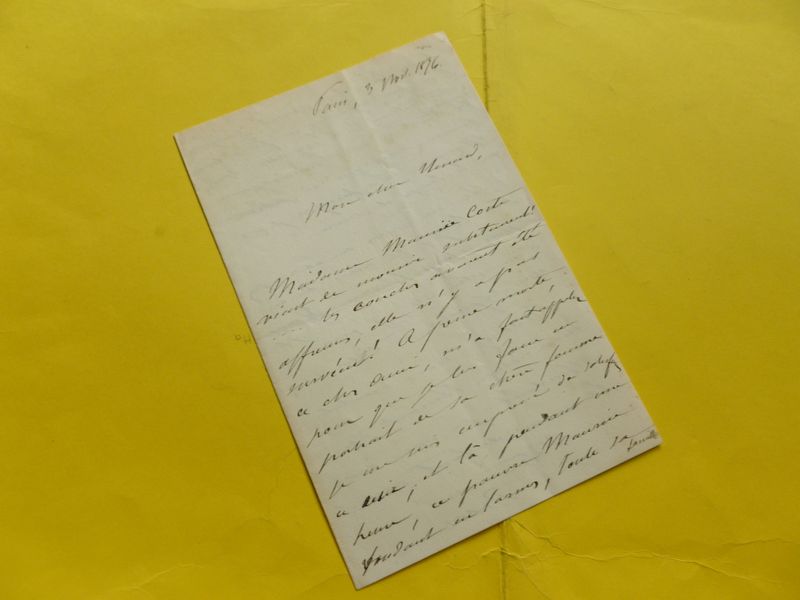 Paris, 3 Nov. 1876.
Mon cher
Madame Maurice Coste
vient de mourir subitement!
.... les couches avaient été
affreuses, elle n'y a pas
survécu! A peine morte,
ce cher ami, m'a fait appeler
pour que je lui fasse un
portrait de sa chère femme
je me suis
à, et là pendant une
heure, ce pauvre Maurice
fondant en larmes, toute sa
famille